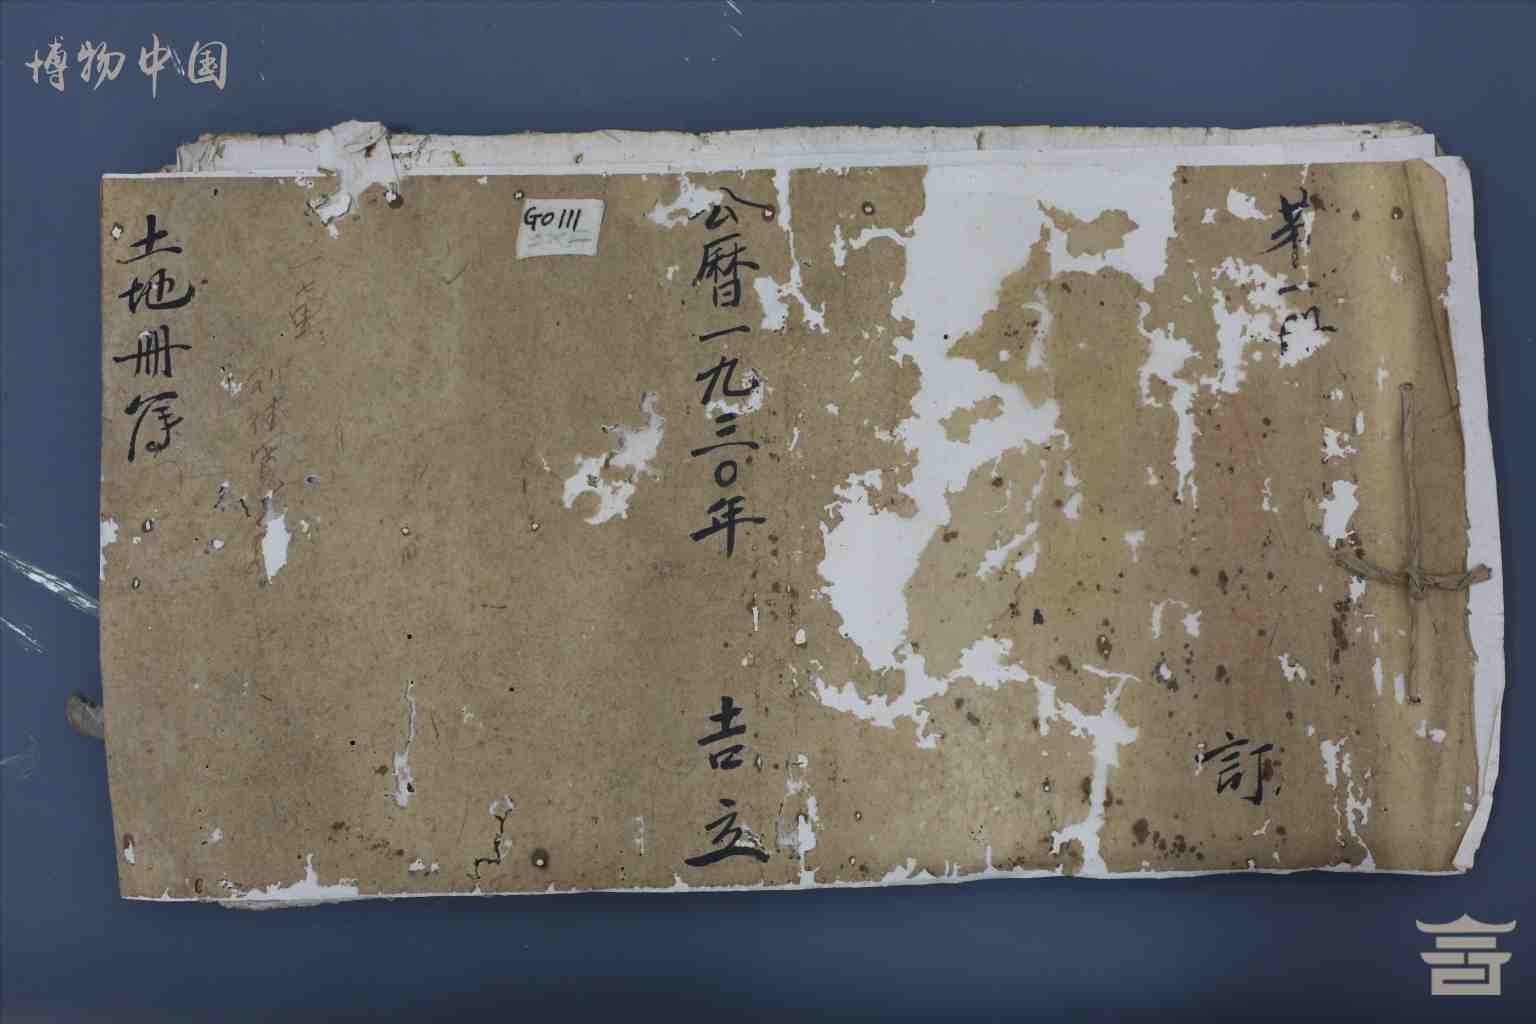 博物中国
第一
訂
公曆一九三〇年 吉立
GO111
土地冊簿